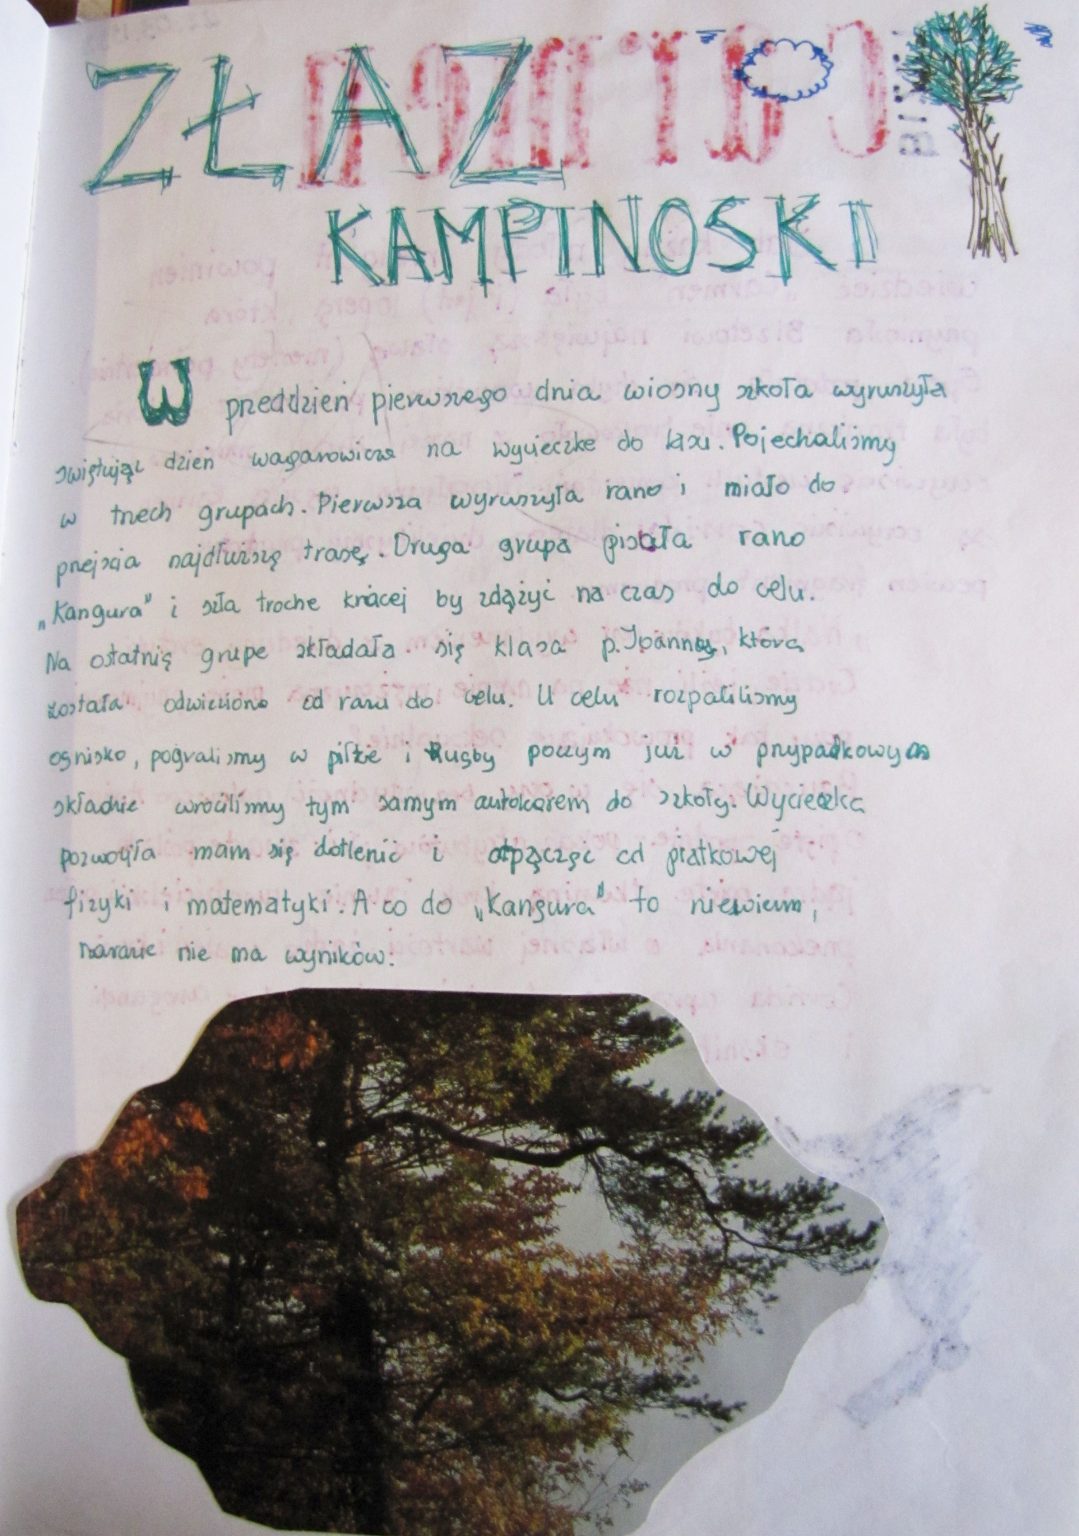 ZŁAZ
KAMPINOSKI
W przeddzień pierwszego dnia wiosny szkoła wyruszyła
świętując dzień wagarowicza na wycieczke do lasu. Pojechaliśmy
w trzech grupach. Pierwsza wyruszyła rano i miało do
przejscia najdłuższę trasę. Druga grupa pisała rano
„Kangura” i szła troche krócej by zdążyć na czas do celu.
Na ostatnię grupe składała się klasa p. Joanny, która
została odwieziona od razu do celu. U celu rozpaliliśmy
ognisko, pograliśmy w piłke i Rugby poczym już w przypadkowym
składzie wróciliśmy tym samym autokarem do szkoły. Wycieczka
pozwoliła nam się dotlenić i odpocząć od piatkowej
fizyki i matematyki. A co do „Kangura” to niewiem,
narazie nie ma wyników.